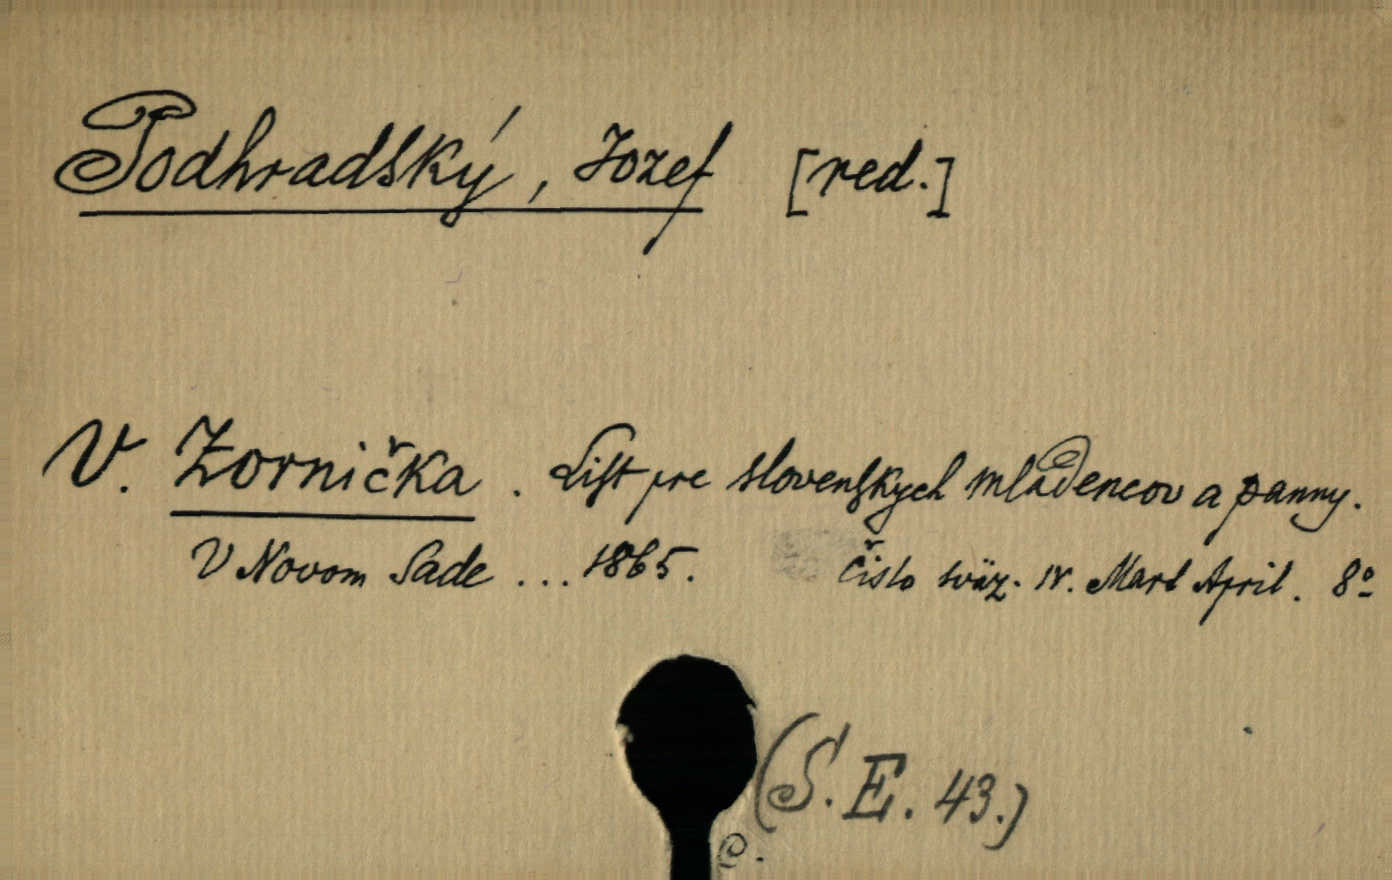 Podhradský, Jozef [red.]
V. Zornička. List pre slovenskych mládencov a panny.
V Novom Sade ... 1865. čislo sväz. IV. Mart April. 8º
(S. E. 43.)